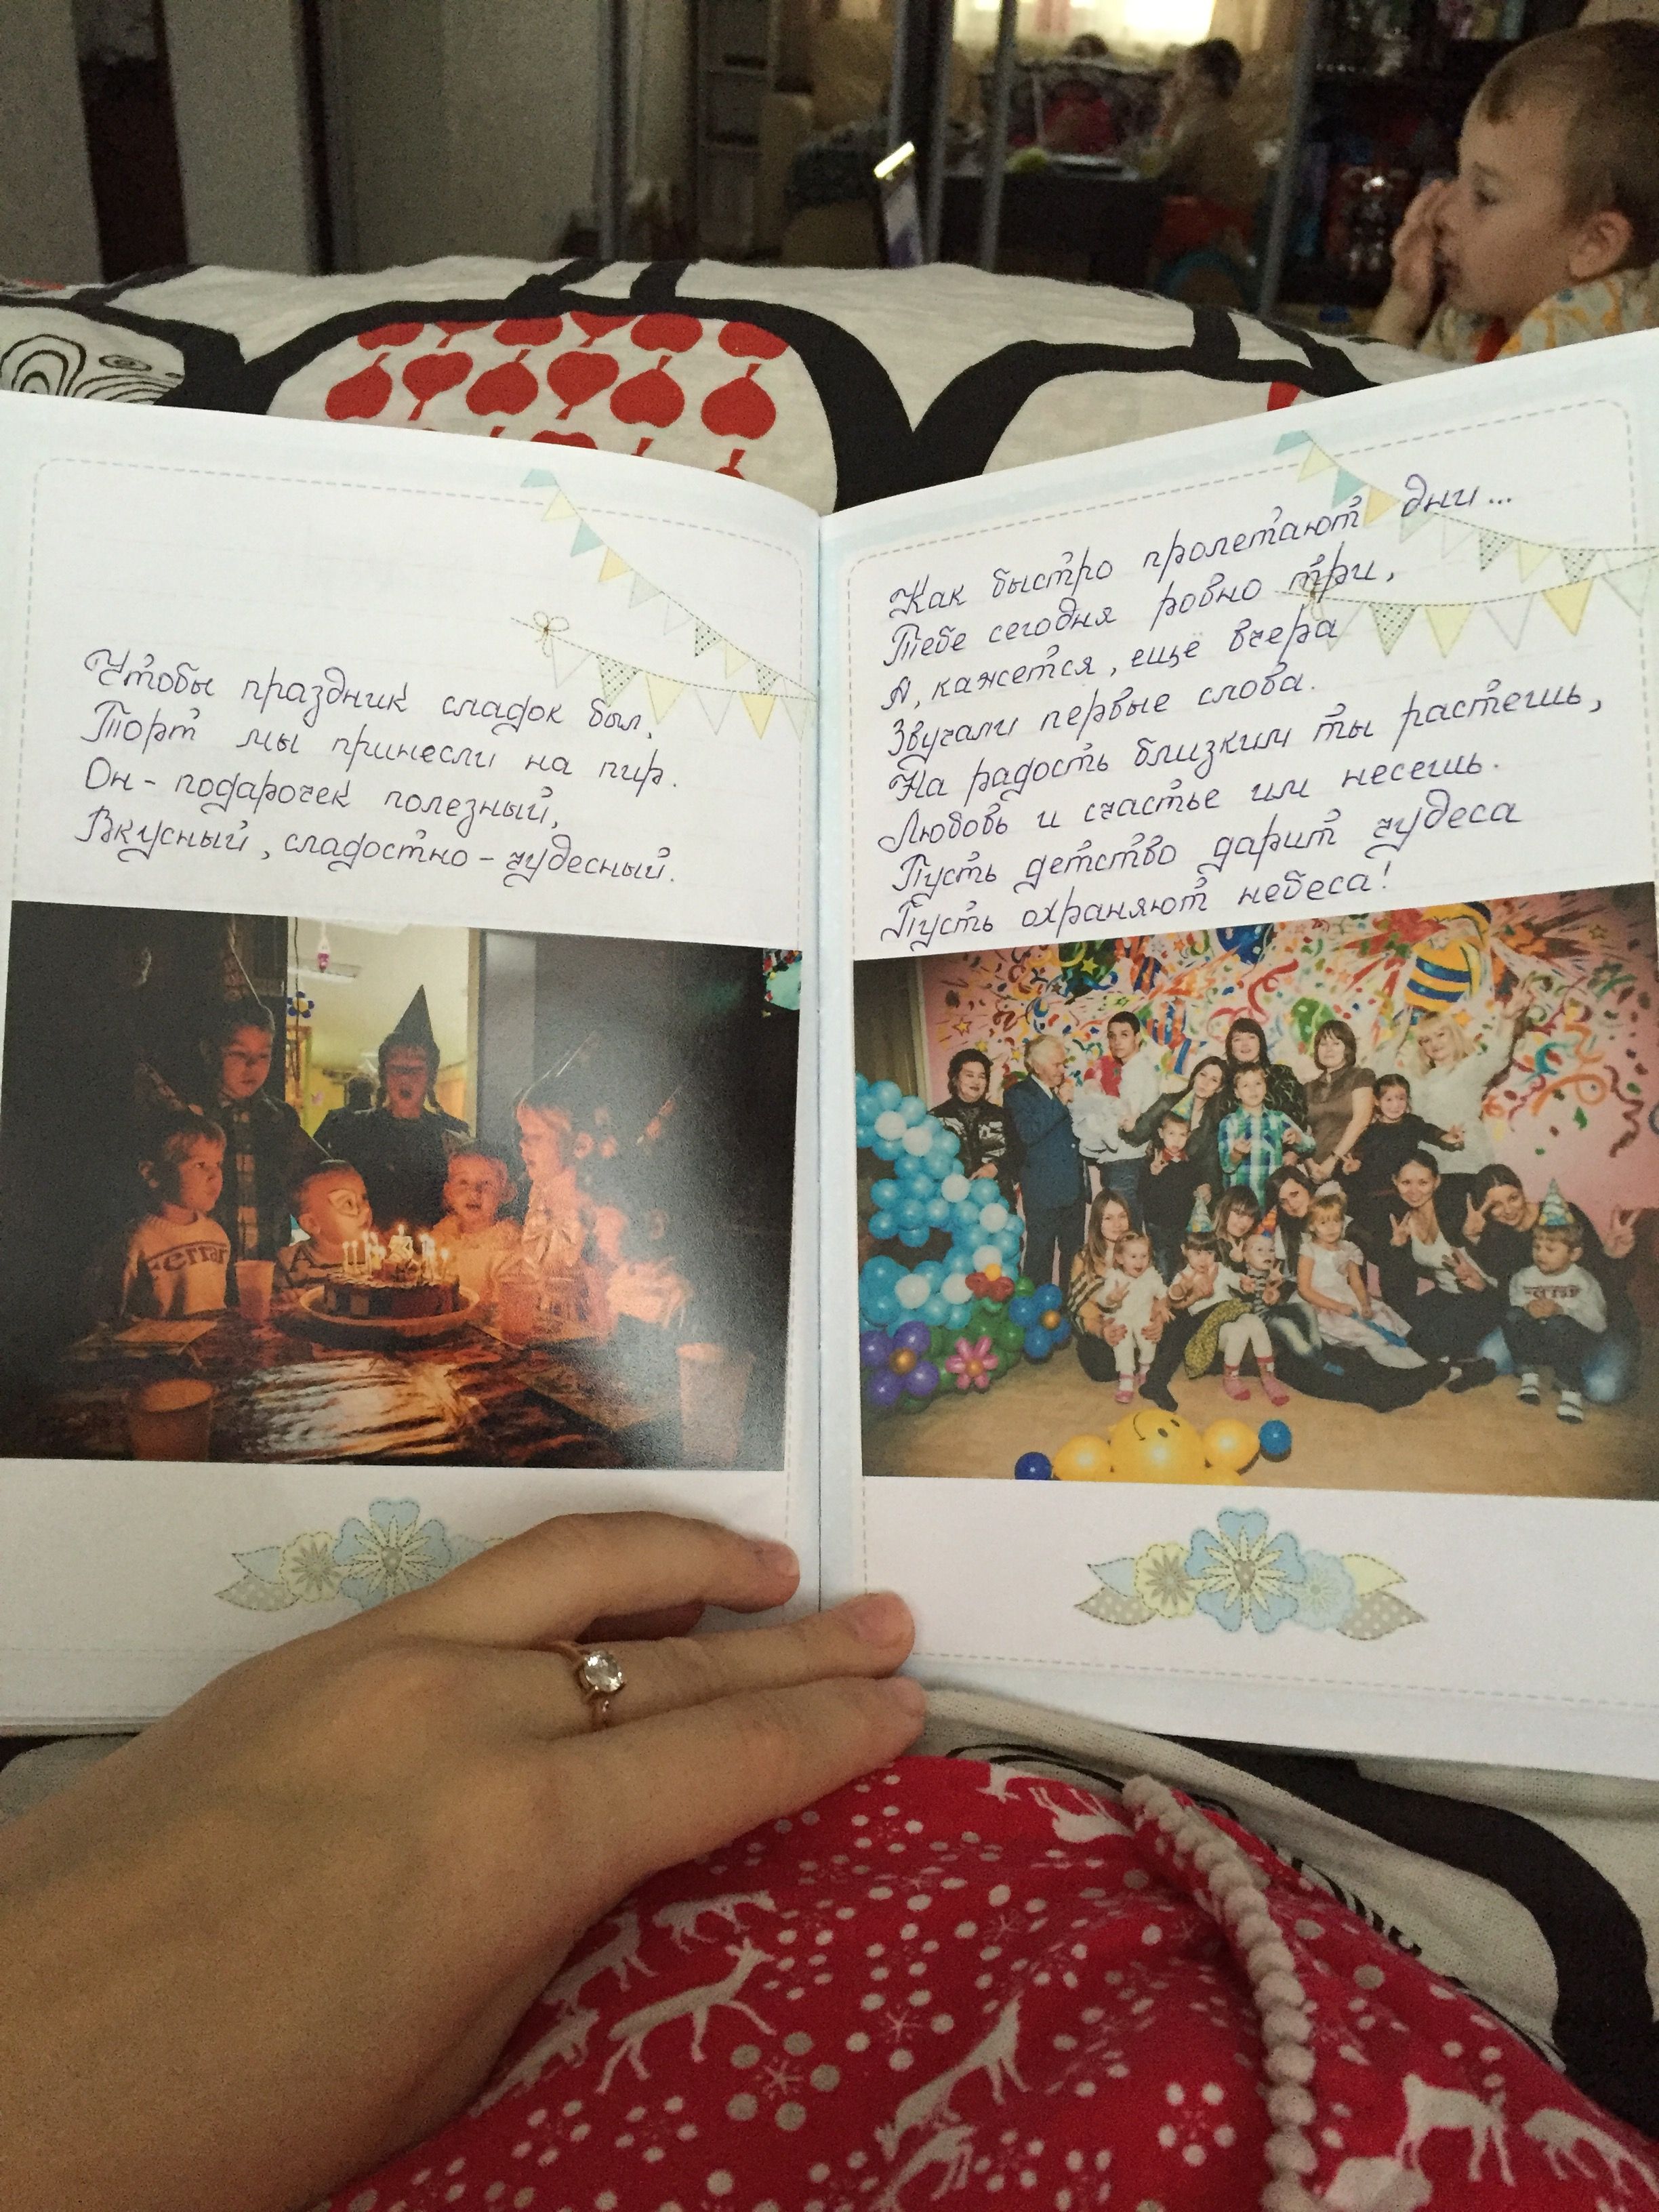 Чтобы праздник сладок был,
Торт мы принесли на пир.
Он - подарочек полезный,
Вкусный, сладостно - чудесный.
Как быстро пролетают дни...
Тебе сегодня ровно три,
А, кажется, еще вчера
Звучали первые слова.
На радость близким ты растешь,
Любовь и счастье им несешь.
Пусть детство дарит чудеса
Пусть охраняют небеса!